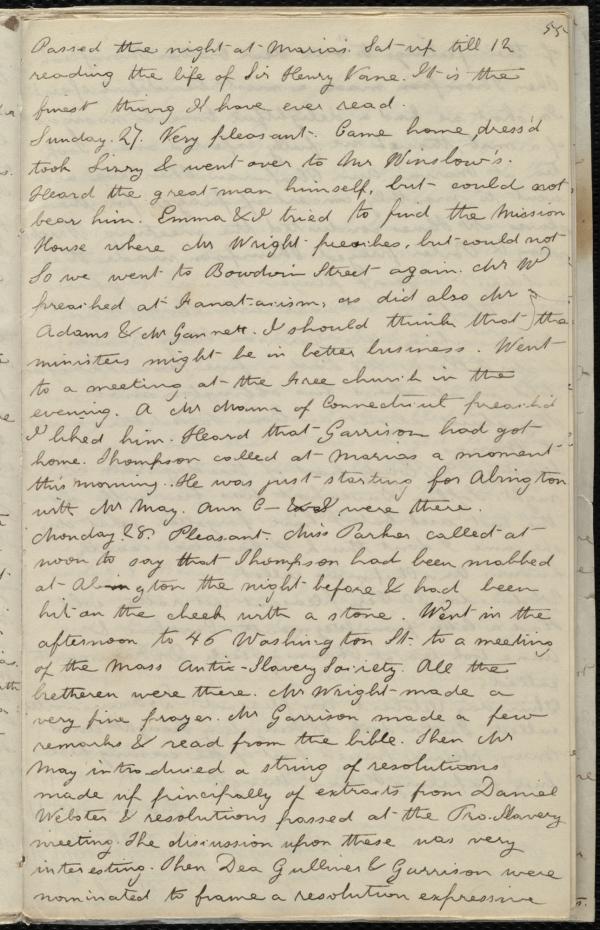 55
Passed the night at Maria's. Sat up till 12
reading the life of Sir Henry Vane. It is the
finest thing I have ever read.
Sunday. 27. Very pleasant. Came home, dress'd
took Lizzy & went over to Mr Winslow's.
Heard the great man himself, but could not
bear him. Emma & I tried to find the Mission
House where Mr Wright preaches, but could not
So we went to Bowdoin Street again. Mr W
preached at Fanaticism, as did also Mr
Adams & Mr Gannett. I should think that the
ministers might be in better business. Went
to a meeting at the Free church in the
evening. A Mr of Connecticut preach'd
I liked him. Heard that Garrison had got
home. Thompson called at Marias a moment
this morning. He was just starting for Abington
with Mr May. Ann C- & I were there.
Monday. 28. Pleasant. Miss Parker called at
noon to say that Thompson had been mobbed
at Abington the night before & had been
hit on the cheek with a stone. Went in the
afternoon to 46 Washington St. to a meeting
of the Mass Anti-Slavery Society. All the
bretheren were there. Mr Wright made a
very fine prayer. Mr Garrison made a few
remarks & read from the bible. Then Mr
May introduced a string of resolutions
made up principally of extracts from Daniel
Webster & resolutions passed at the Pro. Slavery
meeting. The discussion upon these was very
interesting. Then Dea Gulliver & Garrison were
nominated to frame a resolution expressive